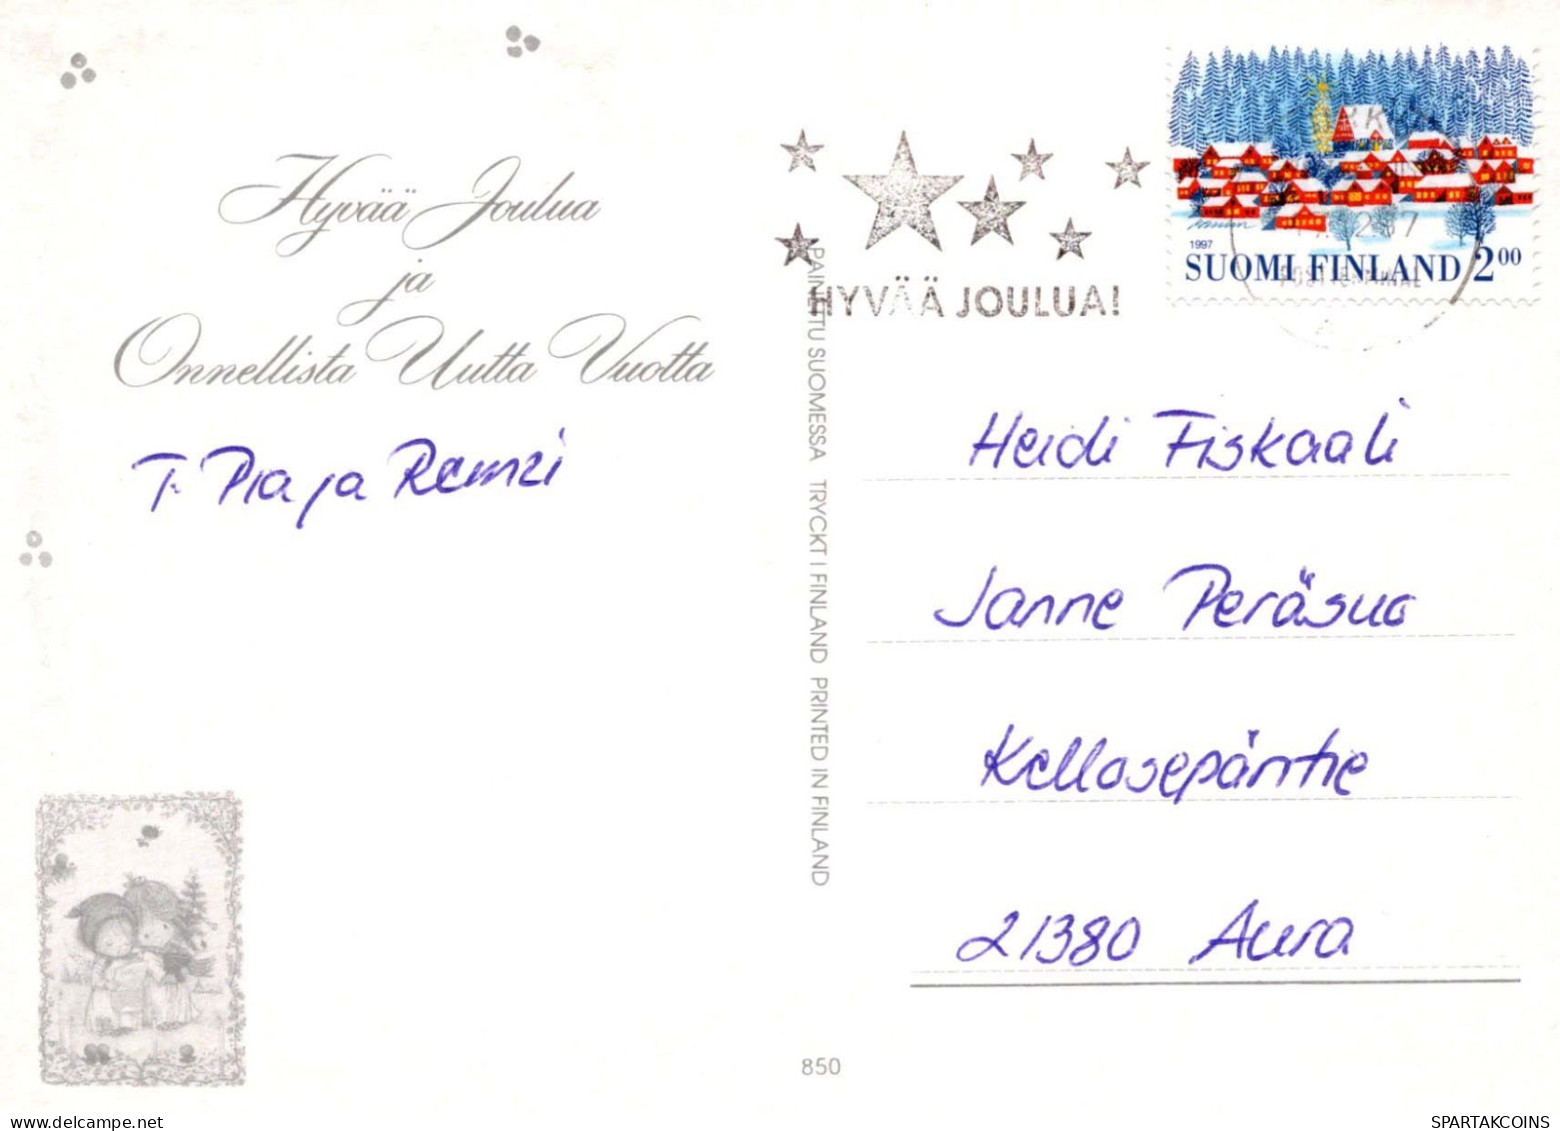 Hyvää Joulua
ja
Onnellista Uutta Vuotta
T. Pia ja Ramzi
HYVÄÄ JOULUA!
1997
SUOMI FINLAND 2.00
PAINETTU SUOMESSA TRYCKT I FINLAND PRINTED IN FINLAND
Heidi Fiskaali
Janne Peräsuo
Kellosepäntie
21380 Aura
850
www.delcampe.net
SPARTAKCOINS